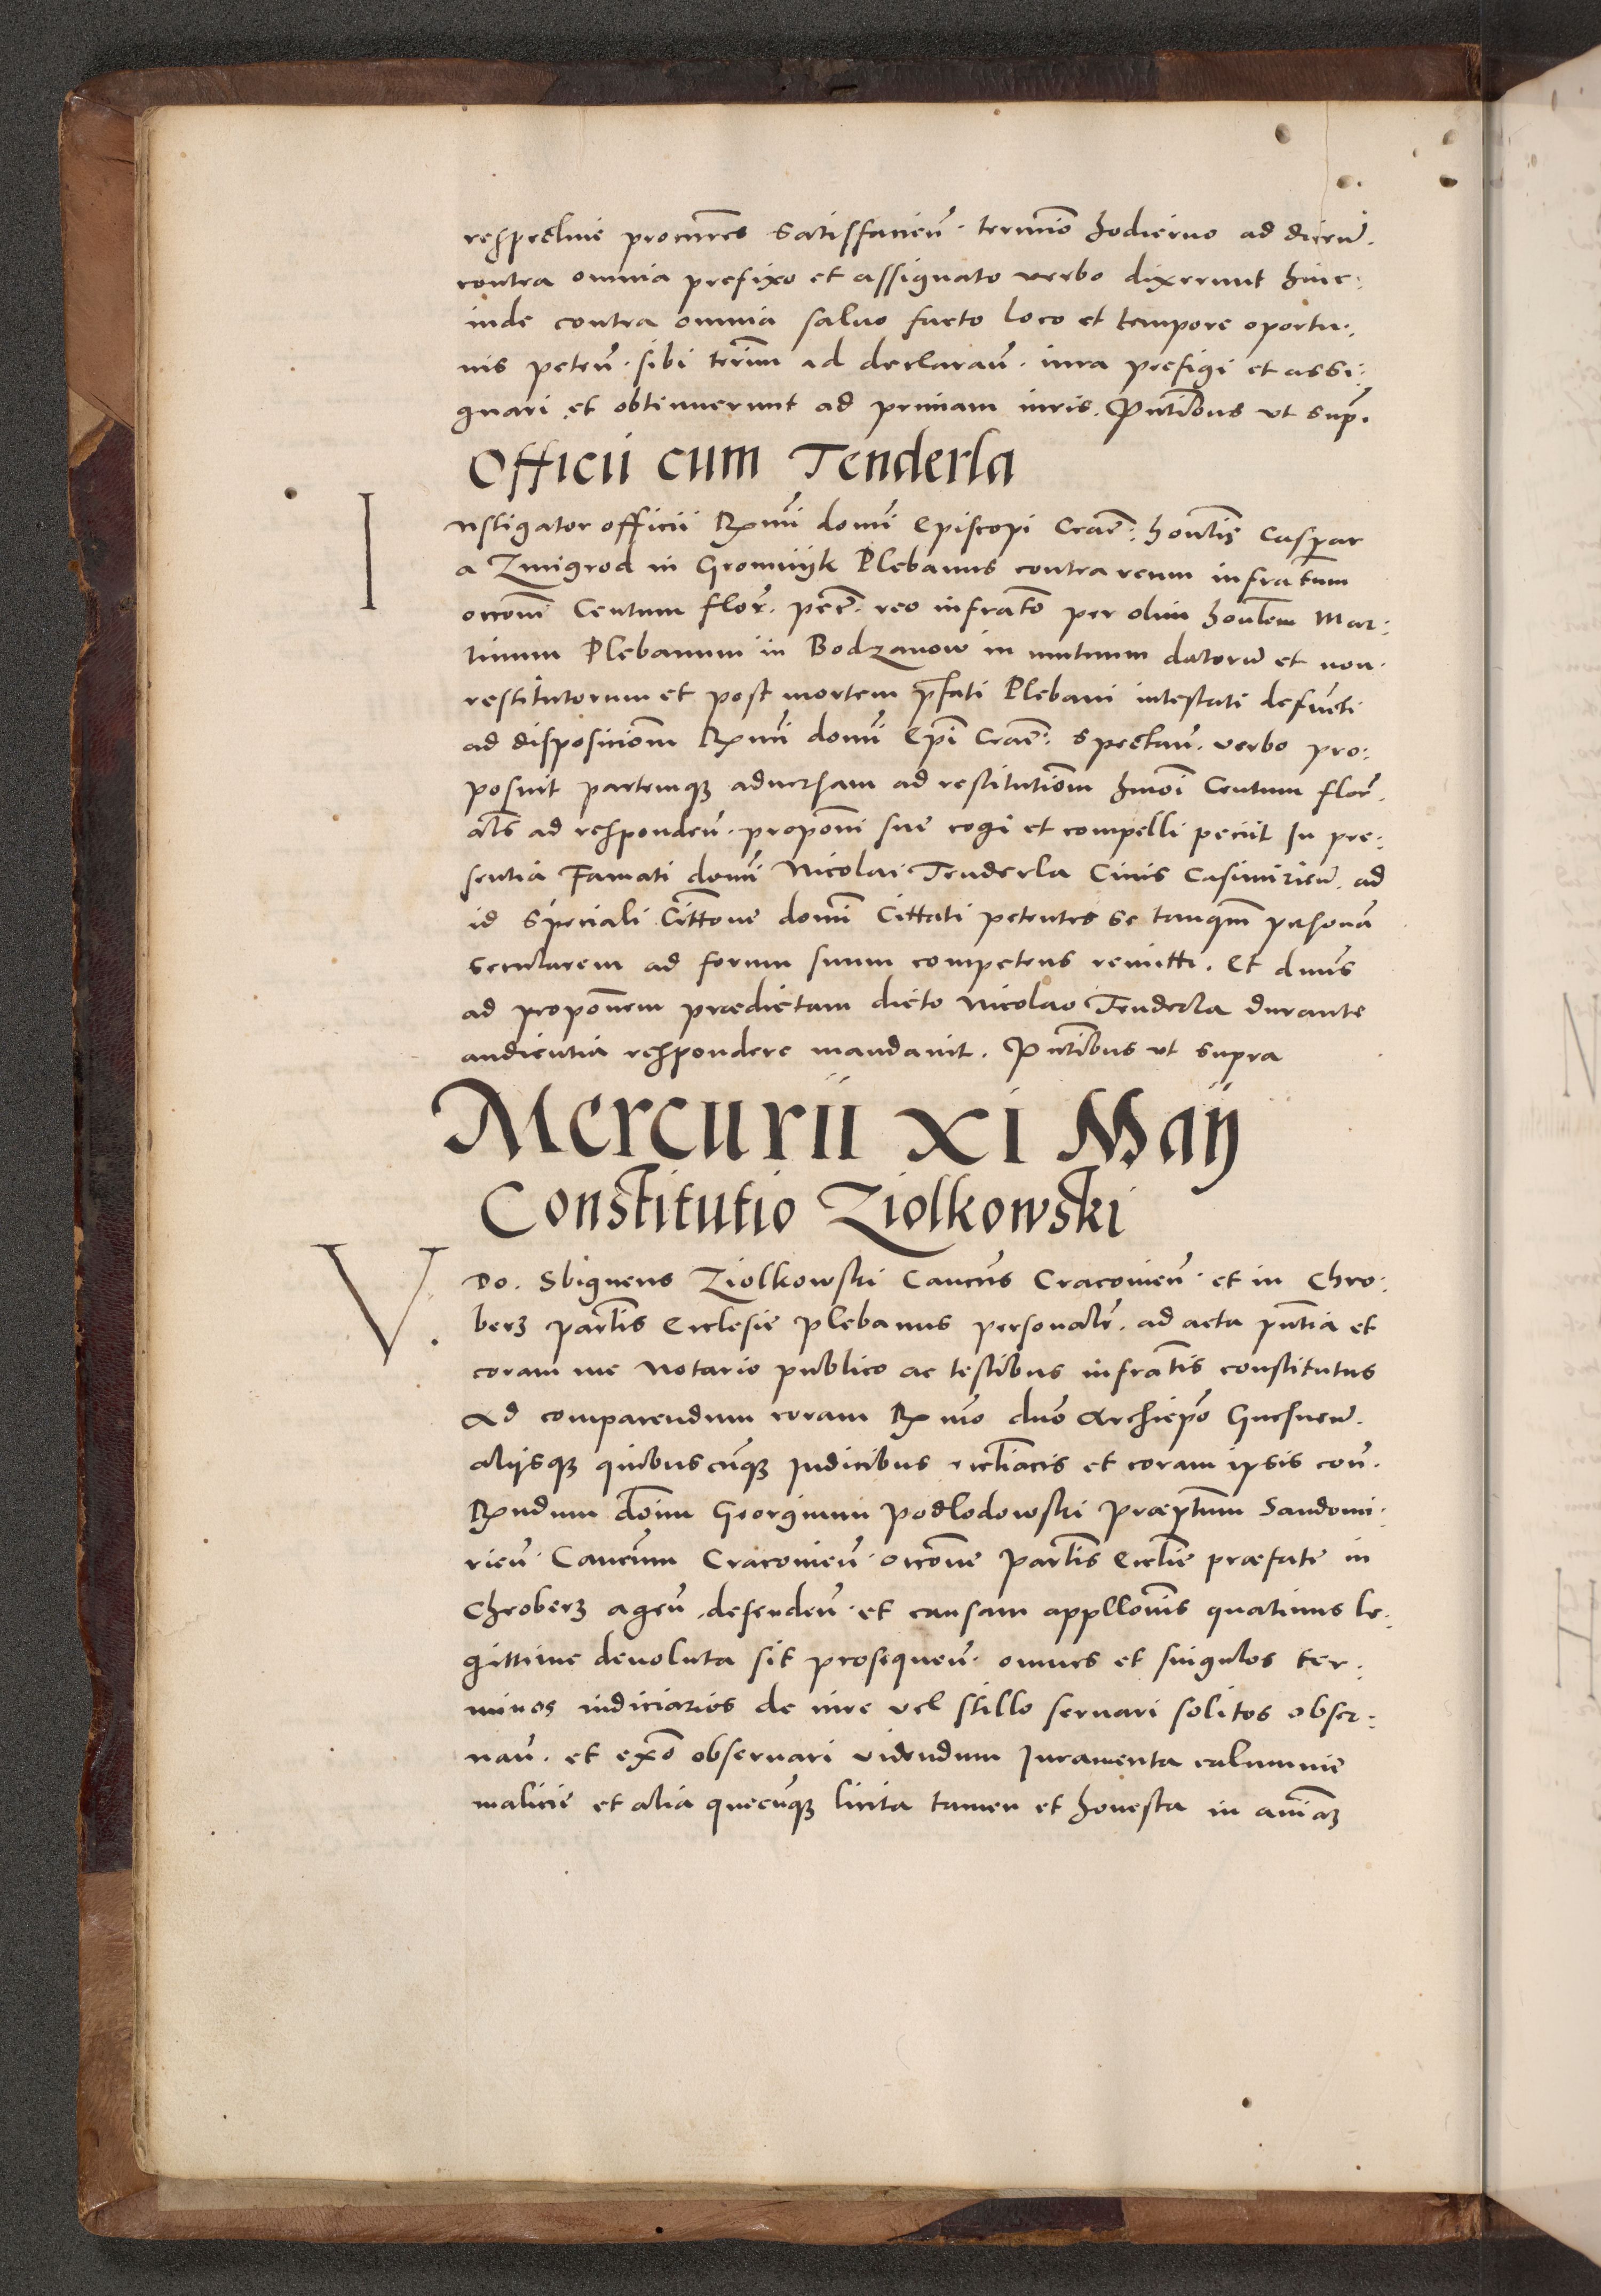 respectiue procures satisfacien̄. termīo hodierno ad dicen̄.
contra omnia prefixo et assignato verbo dixerunt hinc:
inde contra omnia saluo facto loco et tempore oportu:
nis peten̄. sibi termīm ad declaran̄. iura prefigi et assi:
gnari et obtinuerunt ad primam iuris. Pn̄tibus vt sup̄.
Officii cum Tenderla
Instigator officii Rmi domī Episcopi Crac̄: honlis Caspar
a Zmigrod in Gromnijk Plebanus contra reum infratum
occōni Centum flor̄. pec̄. reo infrato per olim honlem Mar:
tinum Plebanum in Bodzanow in mutuum datorū et non
restitutorum et post mortem p̄fati Plebani intestati defuncti
ad disposiciōm Rmi domī Ep̄i Crac̄: spectan̄. verbo pro:
posuit partemq̨ aduersam ad restitutiōm hmōi Centum flor̄.
als ad responden̄. propōni sue cogi et compelli peciit In pre:
sentia Famati domī Nicolai Tenderla Ciuis Casimirien̄. ad
id speciali Cittōne domī Cittati petentes se tanq̄m p̲sonā
secularem ad forum suum competens remitti. Et dnūs
ad propōnem prædictam dicto Nicolao Tenderla durante
audientia respondere mandauit. Pn̄tibus vt supra
Mercurii xi Maij
Constitutio Ziolkowski
V. Do. Sbigneus Ziolkowski Cancūs Cracouien̄. et in Chro:
berz par̄lis Ecclesie plebanus personalr̄. ad acta pn̄tia et
coram me Notario publico ac testibus infratis constitutus
Ad comparendum coram Rmo dnō Archiep̄o Gnesnen̄.
alijsq̨ quibuscūnq̨ Judicibus ecl̄iacis et coram ipsis con̄.
Rndum dōīm Georgium podlodowski præp̄tum Sandomi:
rien̄. Cancūm Cracouien̄. occōne par̄lis Eccl̄ie præfate in
Chroberz agen̄. defenden̄. et causam appllōnis quatinus le:
gittime deuoluta sit prosequen̄. omnes et singulos ter:
minos iudiciarios de iure vel stillo seruari solitos obser:
uan̄. et exn̄o obseruari videndum Juramenta calumnie
malicie et alia quecūnq̨ licita tamen et honesta in anīaꝫ